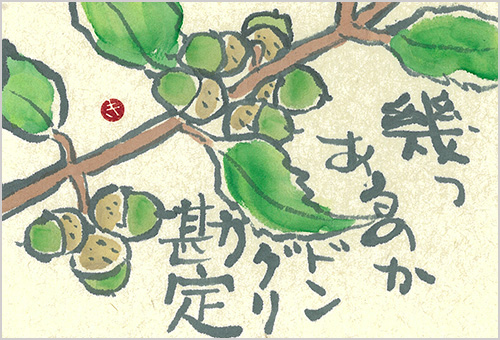 幾つ
あるのか
ドン
グリ
カ
勘定
き